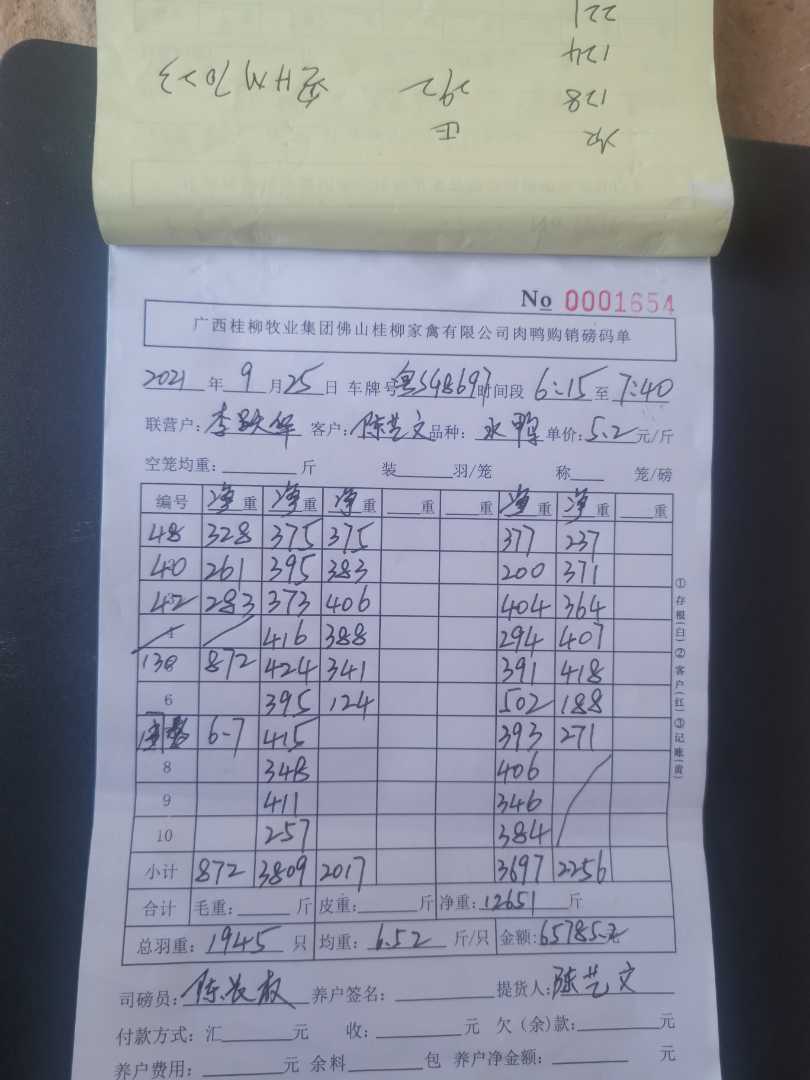 221
124
128
292
正
HM7023
No 0001654
广西桂柳牧业集团佛山桂柳家禽有限公司肉鸭购销磅码单
2021 年 9 月 25 日 车牌号 粤S48697 时间段 6:15 至 7:40
联营户: 李 华 客户: 陈艺文 品种: 水鸭 单价: 5.2 元/斤
空笼均重: 斤 装 羽/笼 称 笼/磅
编号 净重 净重 净重 重 重 净重 净重 重
48 328 375 375 377 237
40 261 395 383 200 371
42 283 373 406 404 364
4 416 388 294 407
130 872 424 341 391 418
6 395 124 502 188
6-7 415 393 271
8 348 406
9 411 346
10 257 384
小计 872 3809 2017 3697 2256
合计 毛重: 斤 皮重: 斤 净重: 12651 斤
总羽重: 1945 只 均重: 6.52 斤/只 金额: 65785元
司磅员: 陈 养户签名: 提货人: 陈艺文
付款方式: 汇 元 收: 元 欠(余)款: 元
养户费用: 元 余料 包 养户净金额: 元
①存根(白)②客户(红)③记账(黄)